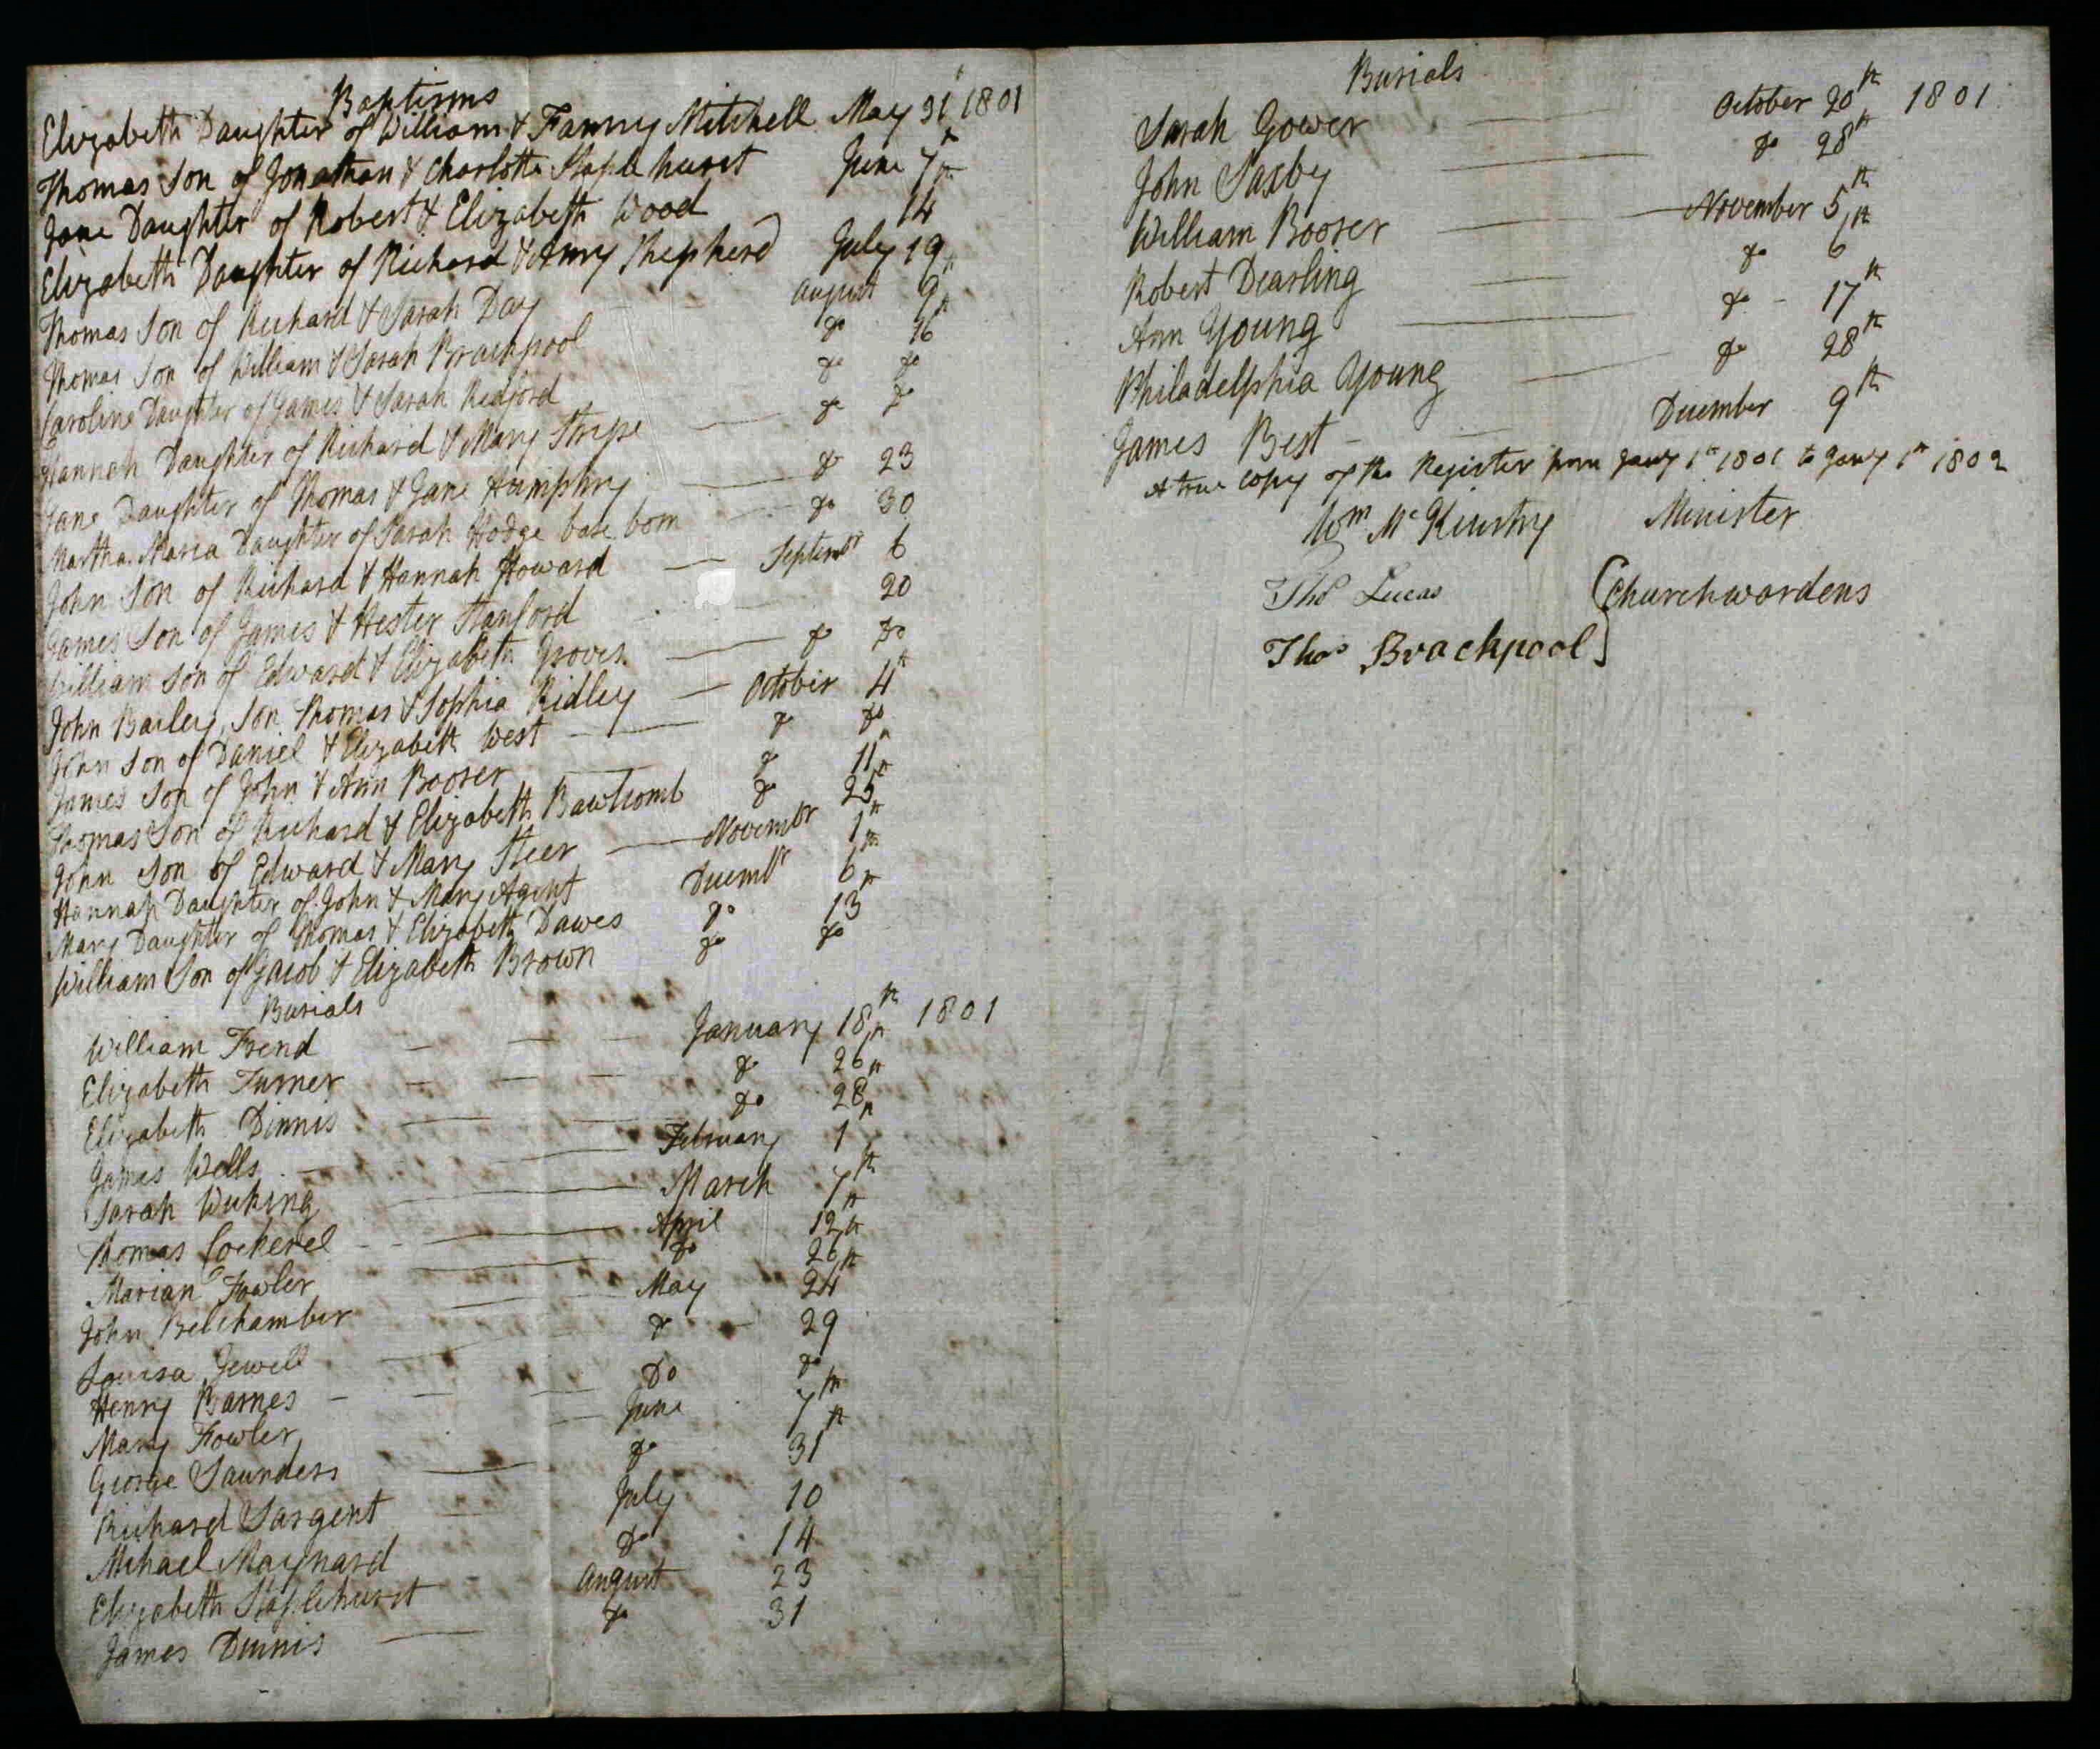 Baptisms
Elizabeth Daughter of William & Fanny Mitchell May 31st 1801
Thomas Son of Jonathan & Charlotte Staplehurst June 7th
Jane Daughter of Robert & Elizabeth Wood 14th
Elizabeth Daughter of Richard & Amy Shepherd July 19
Thomas Son of Richard & Sarah Day August 9th
Thomas Son of William & Sarah Brackpool do 16th
Caroline Daughter of James & Sarah Redford do do
Hannah Daughter of Richard & Mary Stripe do do
Jane Daughter of Thomas & Jane Humphry do 23
Martha Maria Daughter of Sarah Hodge base born do 30
John Son of Richard & Hannah Howard Septembr 6
James Son of James & Hester Stanford 20
William Son of Edward & Elizabeth Groves do do
John Bailey, Son Thomas & Sophia Ridley October 4th
John Son of Daniel & Elizabeth West do do
James Son of John & Ann Booser do 11th
Thomas Son of Richard & Elizabeth Bawcomb do 25th
John Son of Edward & Mary Steer Novembr 1st
Hannah Daughter of John & Mary Agent Decembr 6th
Mary Daughter of Thomas & Elizabeth Dawes do 13th
William Son of Jacob & Elizabeth Brown do do
Burials
William Frend January 18th 1801
Elizabeth Turner do 26th
Elizabeth Dinnis do 28th
James Wells February 1st
Sarah Wicking March 7th
Thomas Cockerel April 12th
Marian Fowler do 26th
John Belchamber May 24th
Louisa Jewell do 29
Henry Barnes Do do
Mary Fowler June 7th
George Saunders do 31st
Richard Sargent July 10
Michael Maynard do 14
Elizabeth Staplehurst August 23
James Dinnis do 31
Burials
Sarah Gower October 20th 1801
John Saxby do 28th
William Booser November 5th
Robert Dearling do 6th
Ann Young do 17th
Philadelphia Young do 28th
James Best December 9th
A true Copy of the Register from Jany 1st 1801 to Jany 1st 1802
Wm McKinstry Minister
Thos Lucas Churchwardens
Thos Brackpool